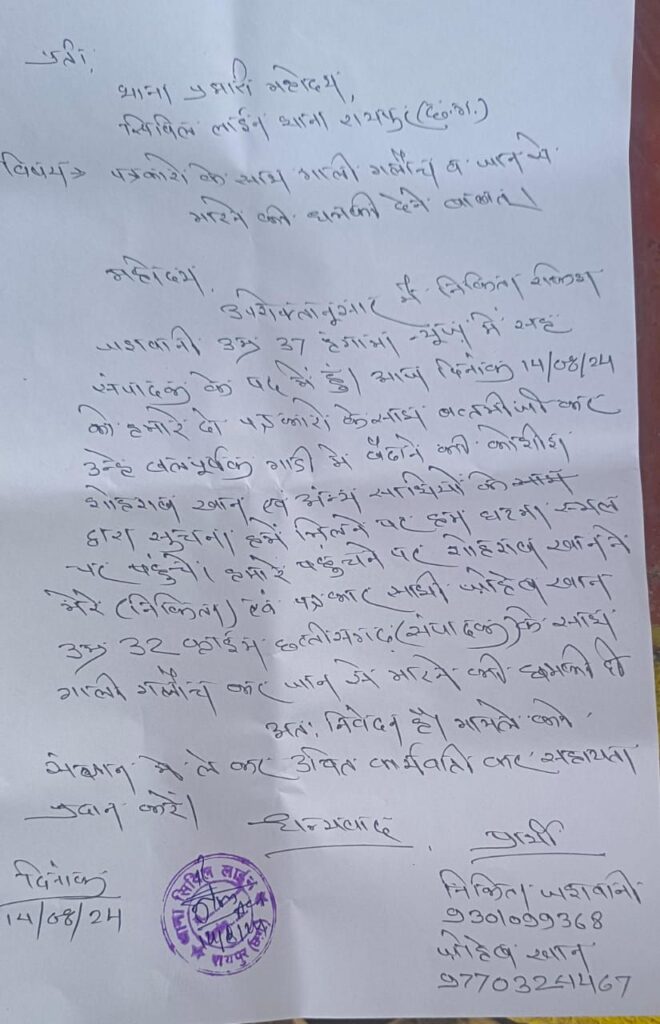 प्रति,
थाना प्रभारी महोदय,
सिविल लाईन थाना रायपुर (छ.ग.)
विषय→ पत्रकारों के साथ गाली गलौच व जान से
मारने की धमकी देने बाबत।
महोदय,
उपरोक्तानुसार मैं निकिता
जसवानी उम्र 37 हंगामा न्यूज़ में सह
संपादक के पद में हूँ। आज दिनांक 14/08/24
को हमारे दो पत्रकारो के साथ बत्तमीजी कर
उन्हे बलपूर्वक गाडी मे बैठाने की कोशीश
शोहराब खान एवं अन्य साथियों के साथ
द्वारा सुचना हमें मिलने पर हम घटना स्थल
पर पहुंचे। हमारे पहुंचने पर शोहराब खान ने
मेरे (निकिता) एवं पत्रकार साथी खान
उम्र 32 क्राईम छत्तीसगढ़ (संपादक) के साथ
गाली गलौच कर जान से मारने की धमकी दी
अतः निवेदन है। मामले को
संज्ञान मे ले कर उचित कार्यवाही कर सहायता
प्रदान करें।
धन्यवाद
प्रार्थी
दिनांक
14/08/24
निकिता जसवानी
9301099368
खान
थाना सिविल लाईन
रायपुर (छ.ग.)